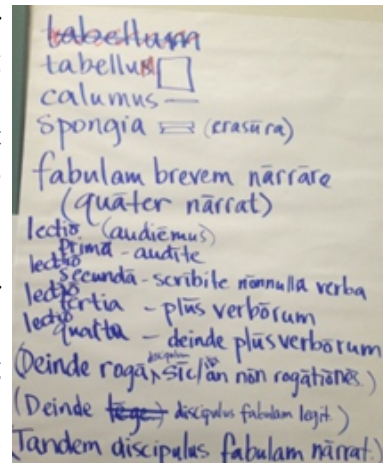 tabellum
tabellum
calumus
spongia (erasūra)
fabulam brevem nārrāre
(quāter nārrat)
lectiō (audiēmus)
prīma - audīte
lectiō
secunda - scrībite nōnnulla verba
lectiō
tertia - plūs verbōrum
lectiō
quarta - deinde plūs verbōrum
(Deinde rogā discipulum sīc/an nōn rogātiōnēs.)
(Deinde tege) discipulus fabulam legit.)
(Tandem discipulus fabulam nārrat.)